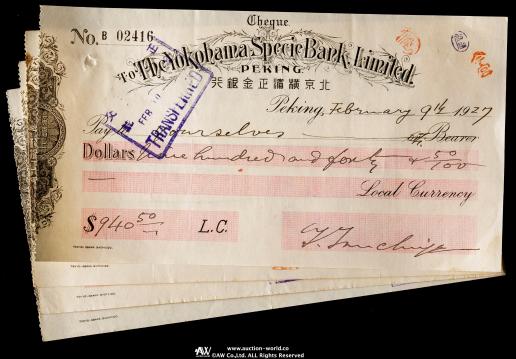 Cheque
No. B 02416
To The Yokohama Specie Bank, Limited.
PEKING.
北京橫濱正金銀行
Peking, February 9th 1927
Pay to Ourselves or Bearer
Dollars Nine hundred and forty & 50/100
Local Currency
$940 50 L.C.
TRANSFERRED
FEB
www.auction-world.co
©AW Co,Ltd. All Rights Reserved
AW